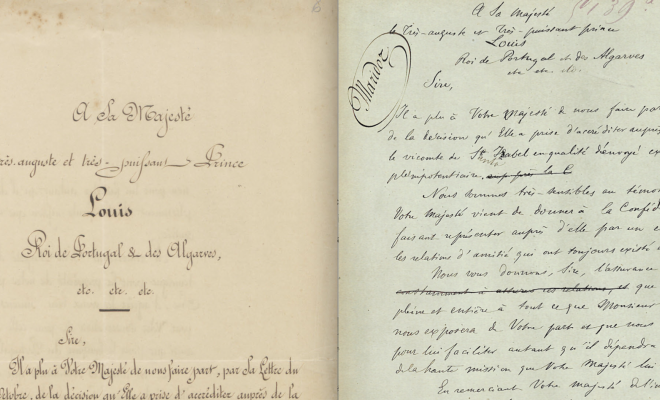 A Sa Majesté
très-auguste et très-puissant Prince
Louis
Roi de Portugal & des Algarves,
etc. etc. etc.
Sire,
Il a plu à Votre Majesté de nous faire part, par Sa Lettre du
Octobre, de la décision qu'Elle a prise d'accréditer auprès de la
A Sa Majesté
le Très-auguste et Très-puissant prince
Louis
Roi de Portugal et des Algarves
etc. etc. etc.
Mardoz
Sire,
Il a plu à Votre Majesté de nous faire par
de la décision qu'Elle a prise d'accréditer auprès
le vicomte de Isabel en qualité d'envoyé ex
plénipotentiaire, la C
Nous sommes très-sensibles au témoi
Votre Majesté vient de donner à la Conféd
faisant représenter auprès d'elle par un e
les relations d'amitié qui ont toujours existé e
Nous vous donnons, Sire, l'assurance
ces relations, et que
pleine et entière à tout ce que Monsieur
nous exposera de Votre part et que nous
pour lui faciliter autant qu'il dépendra
de la haute mission que Votre Majesté lui
En remerciant Votre majesté de l'en